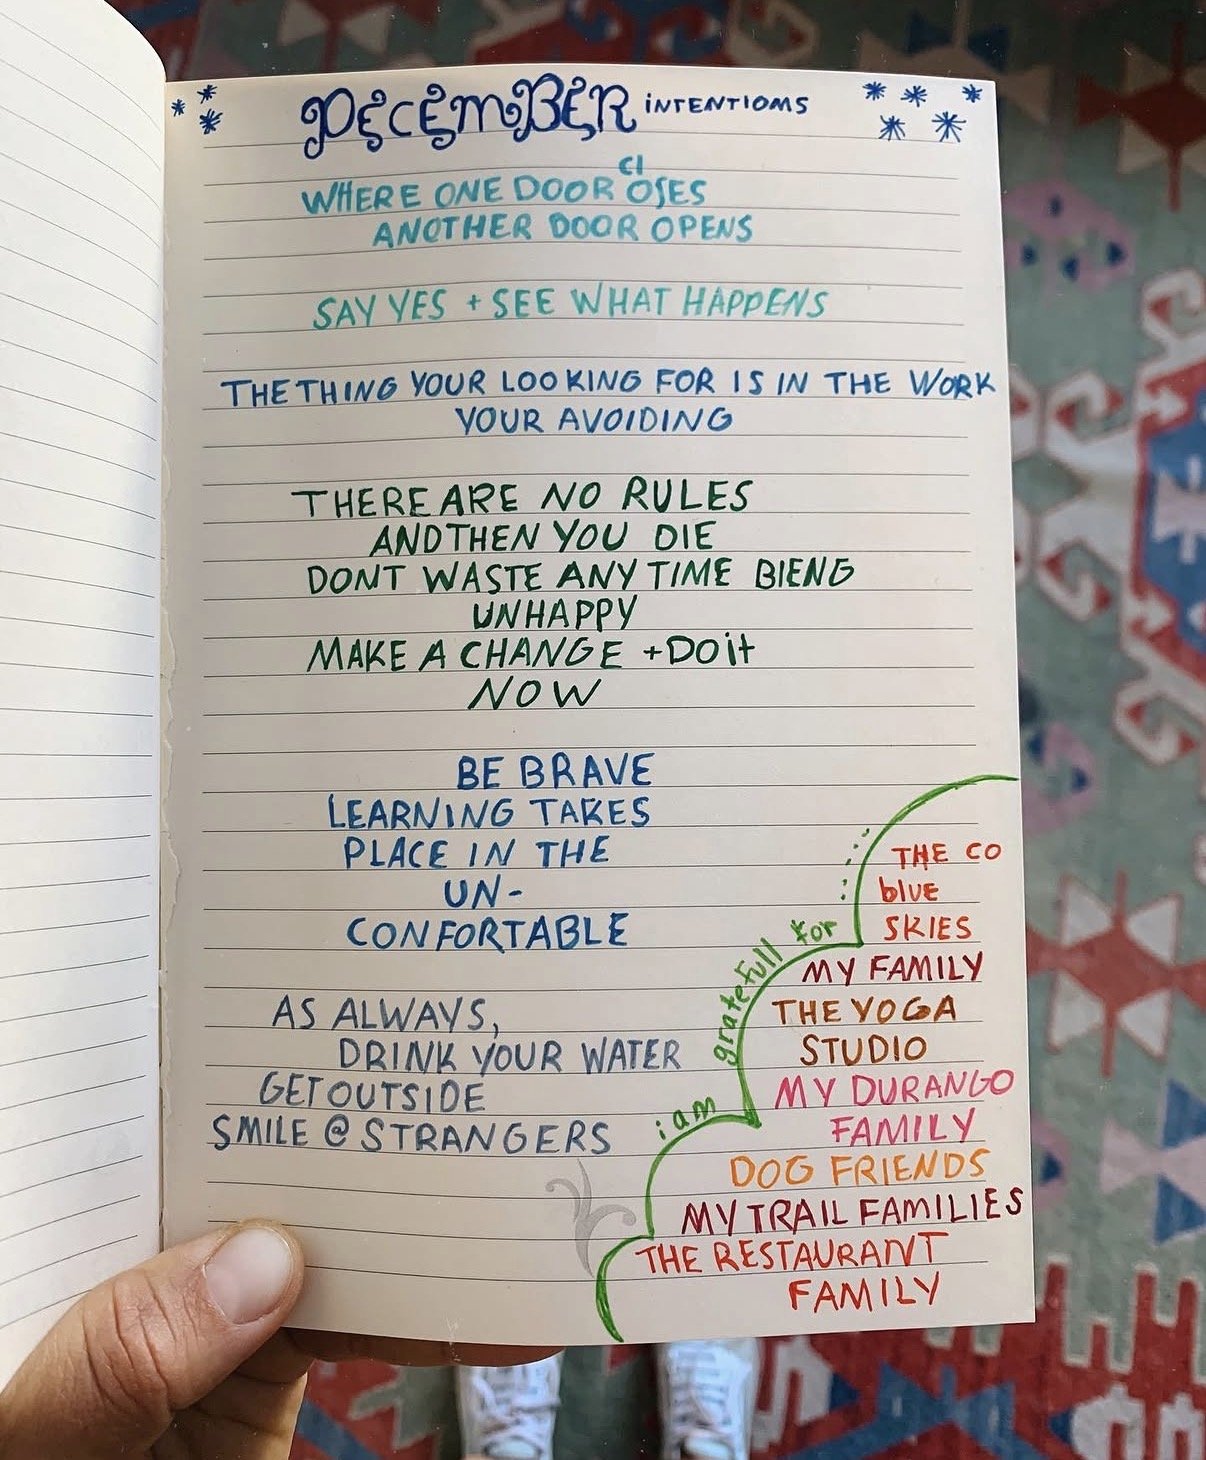 DECEMBER INTENTIOMS
WHERE ONE DOOR ClOSES
ANOTHER DOOR OPENS
SAY YES + SEE WHAT HAPPENS
THE THING YOUR LOOKING FOR IS IN THE WORK
YOUR AVOIDING
THERE ARE NO RULES
AND THEN YOU DIE
DONT WASTE ANY TIME BIENG
UNHAPPY
MAKE A CHANGE + DO it
NOW
BE BRAVE
LEARNING TAKES
PLACE IN THE
UN-
CONFORTABLE
AS ALWAYS,
DRINK YOUR WATER
GET OUTSIDE
SMILE @ STRANGERS
i am gratefull for
THE CO
blUE
SKIES
MY FAMILY
THE YOGA
STUDIO
MY DURANGO
FAMILY
DOG FRIENDS
MY TRAIL FAMILIES
THE RESTAURANT
FAMILY